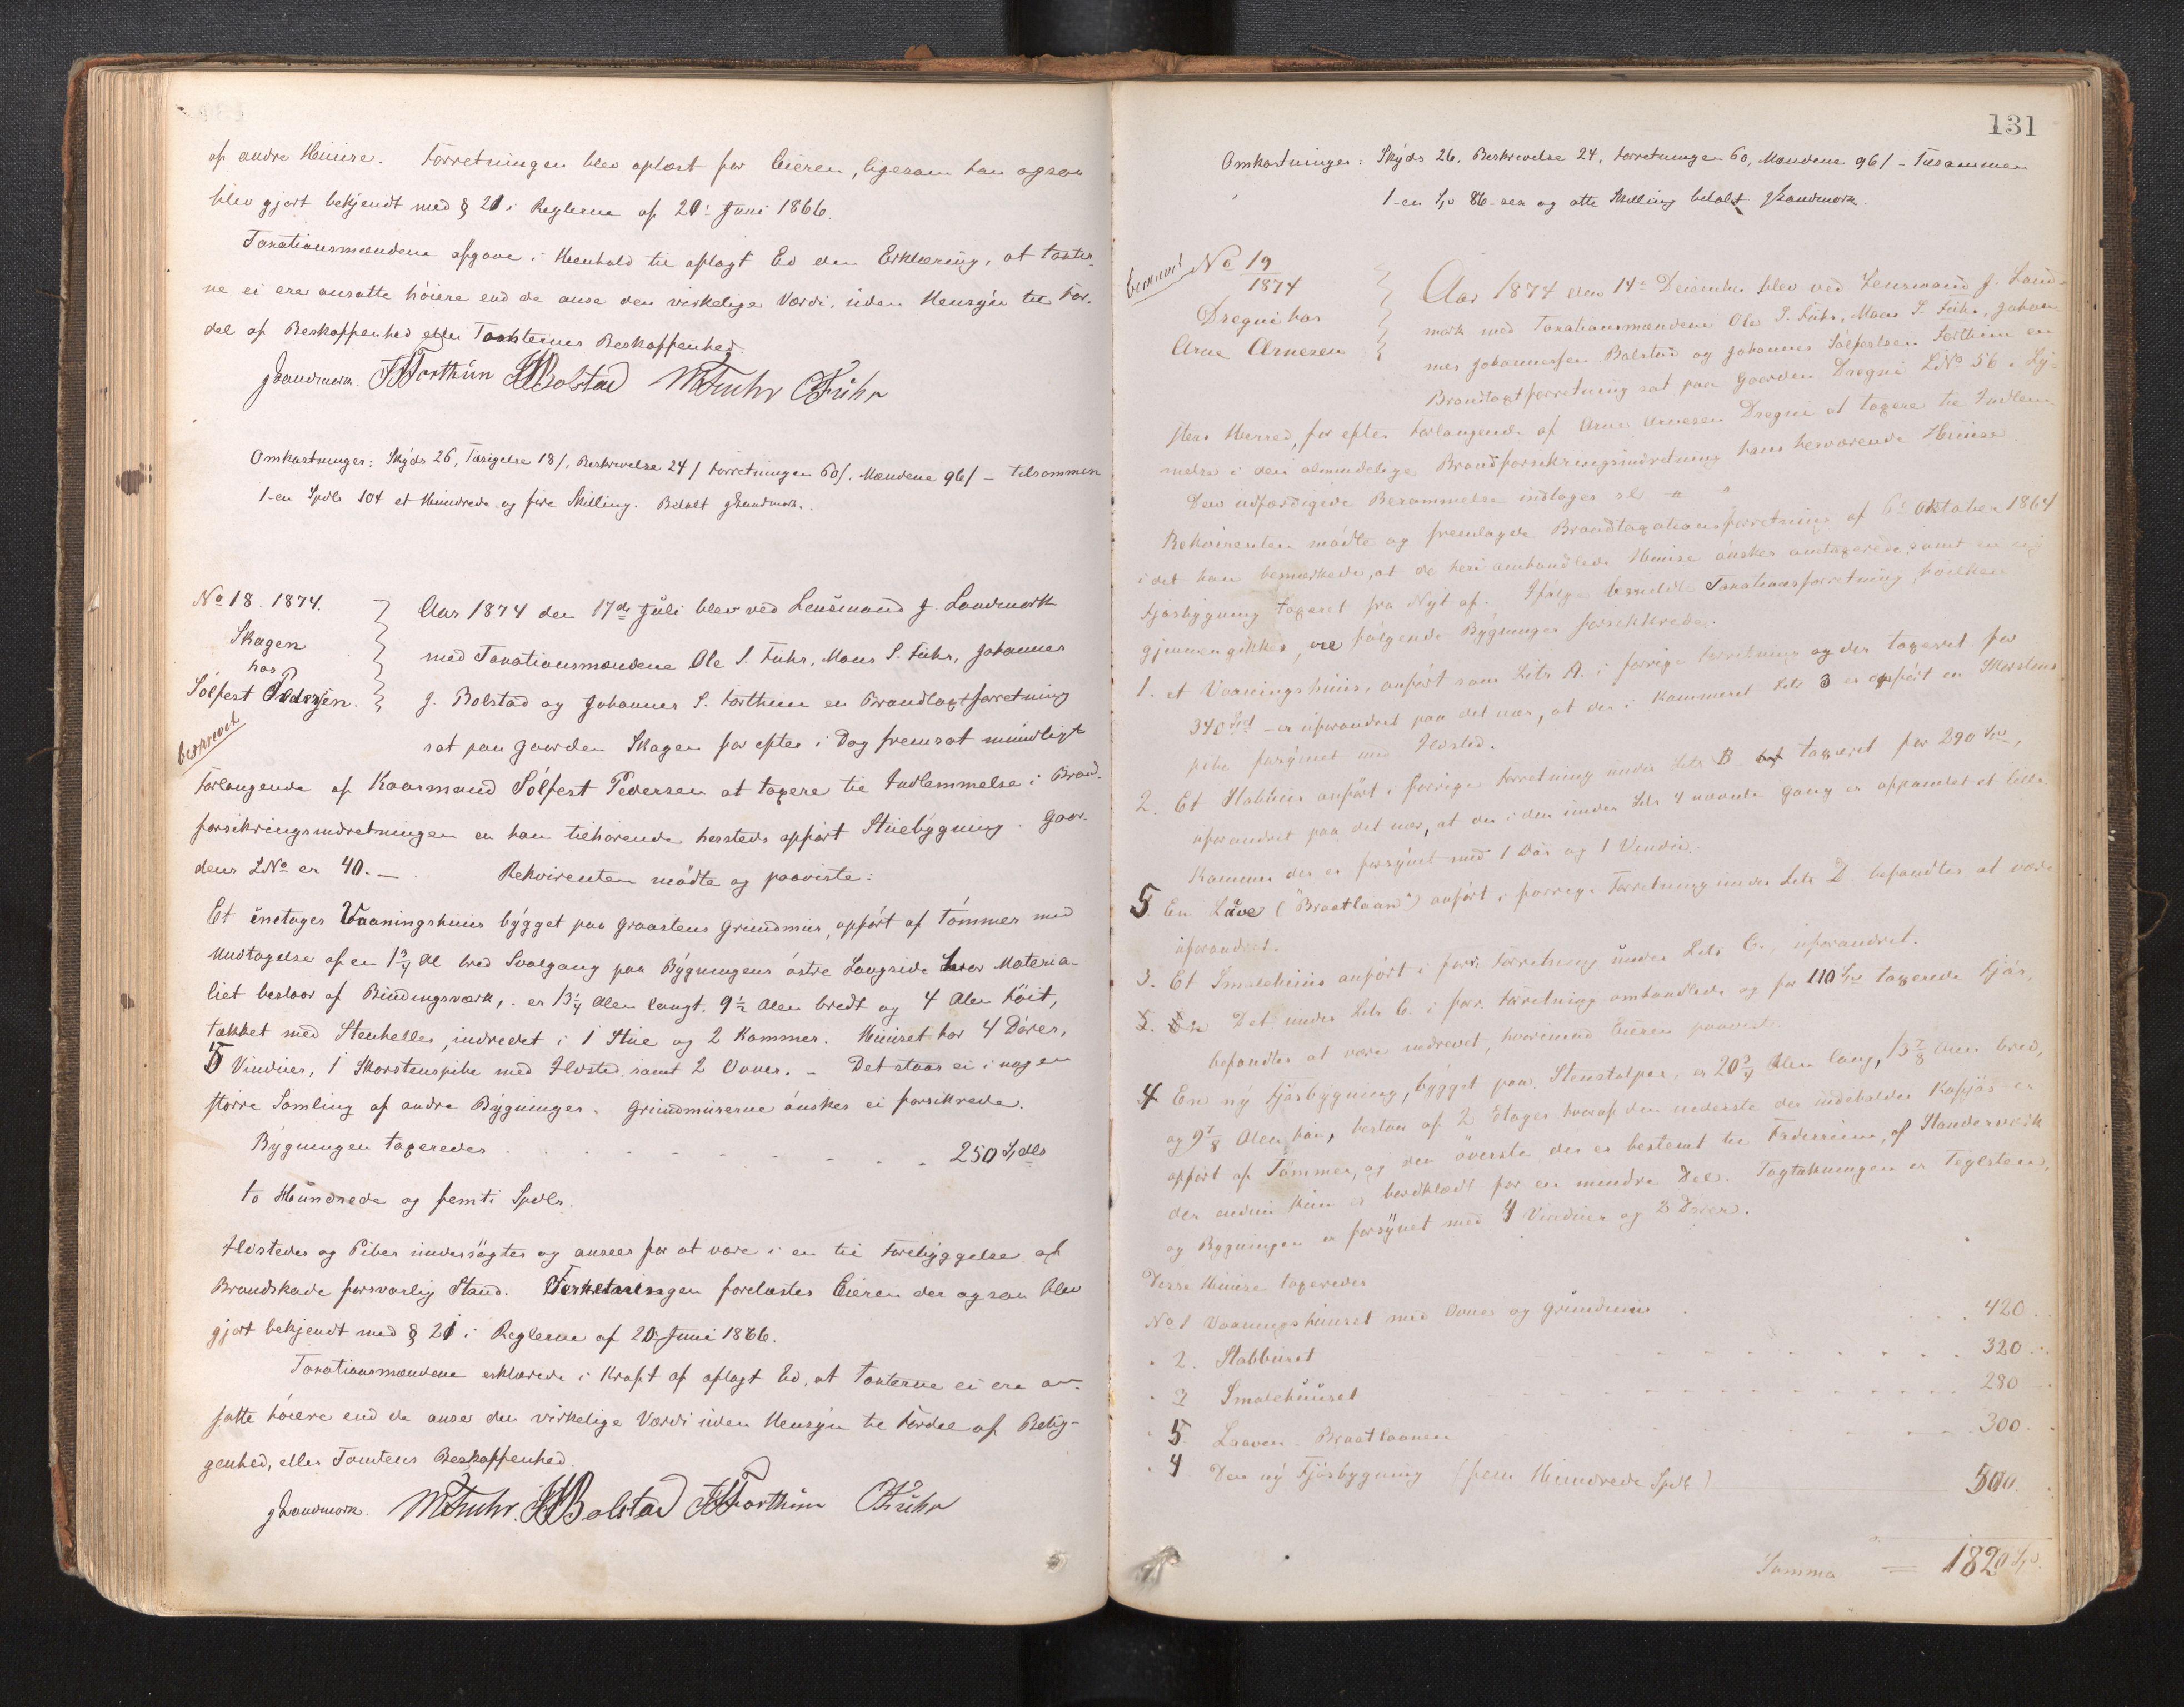 af andre Huuse. Forretningen blev oplæst for Eieren, ligesom han ogsaa
blev gjort bekjendt med § 21 i Reglerne af 21de Juni 1866.
Taxationsmændene afgave i Henhold til aflagt Ed den Erklæring, at taxter-
ne ei ere ansatte höiere end de anse den virkelige Værdi, uden Hensyn til For-
del af Beskaffenhed eller Taxternes Beskaffenhed.
J Landmark. JSForthun JJBolstad MSFuhr OSFuhr
Omkostninger: Skyds 26, Tilsigelse 18/, Beskrivelse 24/ Forretningen 60/, Mændene 96/ – tilsammen
1-en Spdlr 104 et Hundrede og fire Skilling. Betalt J Landmark.
No 18. 1874.
Skagen
hos
Sölfest Pedersen.
beskrevet
Aar 1874 den 17de Juli blev ved Lensmand J. Landmark
med Taxationsmændene Ole S. Fuhr, Mons S. Fuhr, Johannes
J. Bolstad og Johannes S. Forthun en Brandtaxtforretning
sat paa Gaarden Skagen for efter i Dag fremsat mundtligt
Forlangende af Kaarmand Sölfest Pedersen at taxere til Indlemmelse i Brand-
forsikringsindretningen en ham tilhörende hersteds opfört Stuebygning. Gaar-
dens LNo er 40. — Rekvirenten mödte og paaviste:
Et énetages Vaaningshuus bygget paa Graastens Grundmur, opfört af Tömmer med
Undtagelse af en 1 3/4 Al bred Svalgang paa Bygningens östre Langside hvor Materia-
liet bestaar af Bindingsværk, er 13 1/4 Alen langt. 9 1/2 Alen bredt og 4 Alen höit,
tækket med Stenheller, indredet i 1 Stue og 2 Kammer. Huuset har 4 Dörer,
5 Vinduer, 1 Skorstenspibe med Ildsted, samt 2 Ovner. – Det staar ei i nogen
større Samling af andre Bygninger. Grundmurerne önskes ei forsikrede.
Bygningen taxeredes . - - - - - - - - 250 Spdlr
to Hundrede og femti Spdlr.
Ildsteder og Piber undersögtes og ansees for at være i en til Forebyggelse af
Brandskade forsvarlig Stand. Forretningen forelæstes Eieren der ogsaa blev
gjort bekjendt med § 21 i Reglerne af 21 Juni 1866.
Taxationsmændene erklærede i Kraft af aflagt Ed, at Taxterne ei ere an-
satte höiere end de anse den virkelige Værdi uden Hensyn til Fordel af Belig-
genhed, eller Tomtens Beskaffenhed.
J Landmark. MSFuhr. JJBolstad JSForthun OSFuhr
131
Omkostninger: Skyds 26, Beskrivelse 24, Forretningen 60, Mændene 96/ – Tilsammen
1-en Spd 86 sex og otte Skilling betalt J Landmark.
beskrevet
No 19
1874
Dregni hos
Arne Arnesen
Aar 1874 den 14de December blev ved Lensmand J. Land-
mark med Taxationsmændene Ole S. Fuhr, Mons S. Fuhr, Johan-
nes Johannessen Bolstad og Johannes Sölfestsen Forthun en
Brandtaxtforretning sat paa Gaarden Dregni LNo 56 i Ly-
sters Herred, for efter Forlangende af Arne Arnesen Dregni at taxere til Indlem-
melse i den almindelige Brandforsikringsindretning hans herværende Huuse.
Den udfærdigede Berammelse indtages sl. " "
Rekvirenten mödte og fremlagde Brandtaxationsforretning af 6te Oktober 1864
i det han bemærkede, at de heri omhandlede Huuse önskes omtaxerede, samt en ny
Fjösbygning taxeret fra Nyt af. Ifölge bemeldte Taxationsforretning, hvilken
gjennemgikkes, ere fölgende Bygninger forsikkrede.
1. et Vaaningshuus, anfört som Litr A. i forrige Forretning og der taxeret for
340 Spd – er uforandret paa det nær, at der i Kammeret Litr 3 er opfört en Skorstens
pibe forsynet med Ildsted.
2. Et Stabuur anfört i forrige Forretning under Litr B taxeret for 290 Spd,
uforandret paa det nær, at der i den under Litr 4 nævnte Gang er afpanelet et lille
Kammer der er forsynet med 1 Dör og 1 Vindue.
5. En Löve ("Braatlaan") anfört i forrige Forretning under Litr D. befandtes at være
uforandret.
3. Et Smalehuus anfört i forr. Forretning under Litr C. uforandret.
Det under Litr E. i forr. Forretning omhandlede og for 110 Spd taxerede Fjös,
befandtes at være nedrevet, hvorimod Eieren paaviste:
4 En ny Fjösbygning, bygget paa Stenstolper, er 20 3/4 Alen lang, 13 7/8 Alen bred,
og 9 7/8 Alen höi, bestaar af 2 Etager hvoraf den nederste der indeholder Kofjös er
opfört af Tömmer, og den överste der er bestemt til Foderrum, af Standerværk
der endnu kun er bordklædt for en mindre Del. Tagtækningen er Teglsten,
og Bygningen er forsynet med 4 Vinduer og 3 Dörer.
Disse Huuse taxeredes
No 1 Vaaningshuuset med Ovner og Grundmur . . . 420
" 2. Stabburet - - - - - - 320
" 3 Smalehuuset - - - - - 280
" 5 Laaven - Braatlaanen - - - - 300
" 4 Den ny Fjösbygning (fem Hundrede Spdlr) 500.
Summa = 1820 Spd.